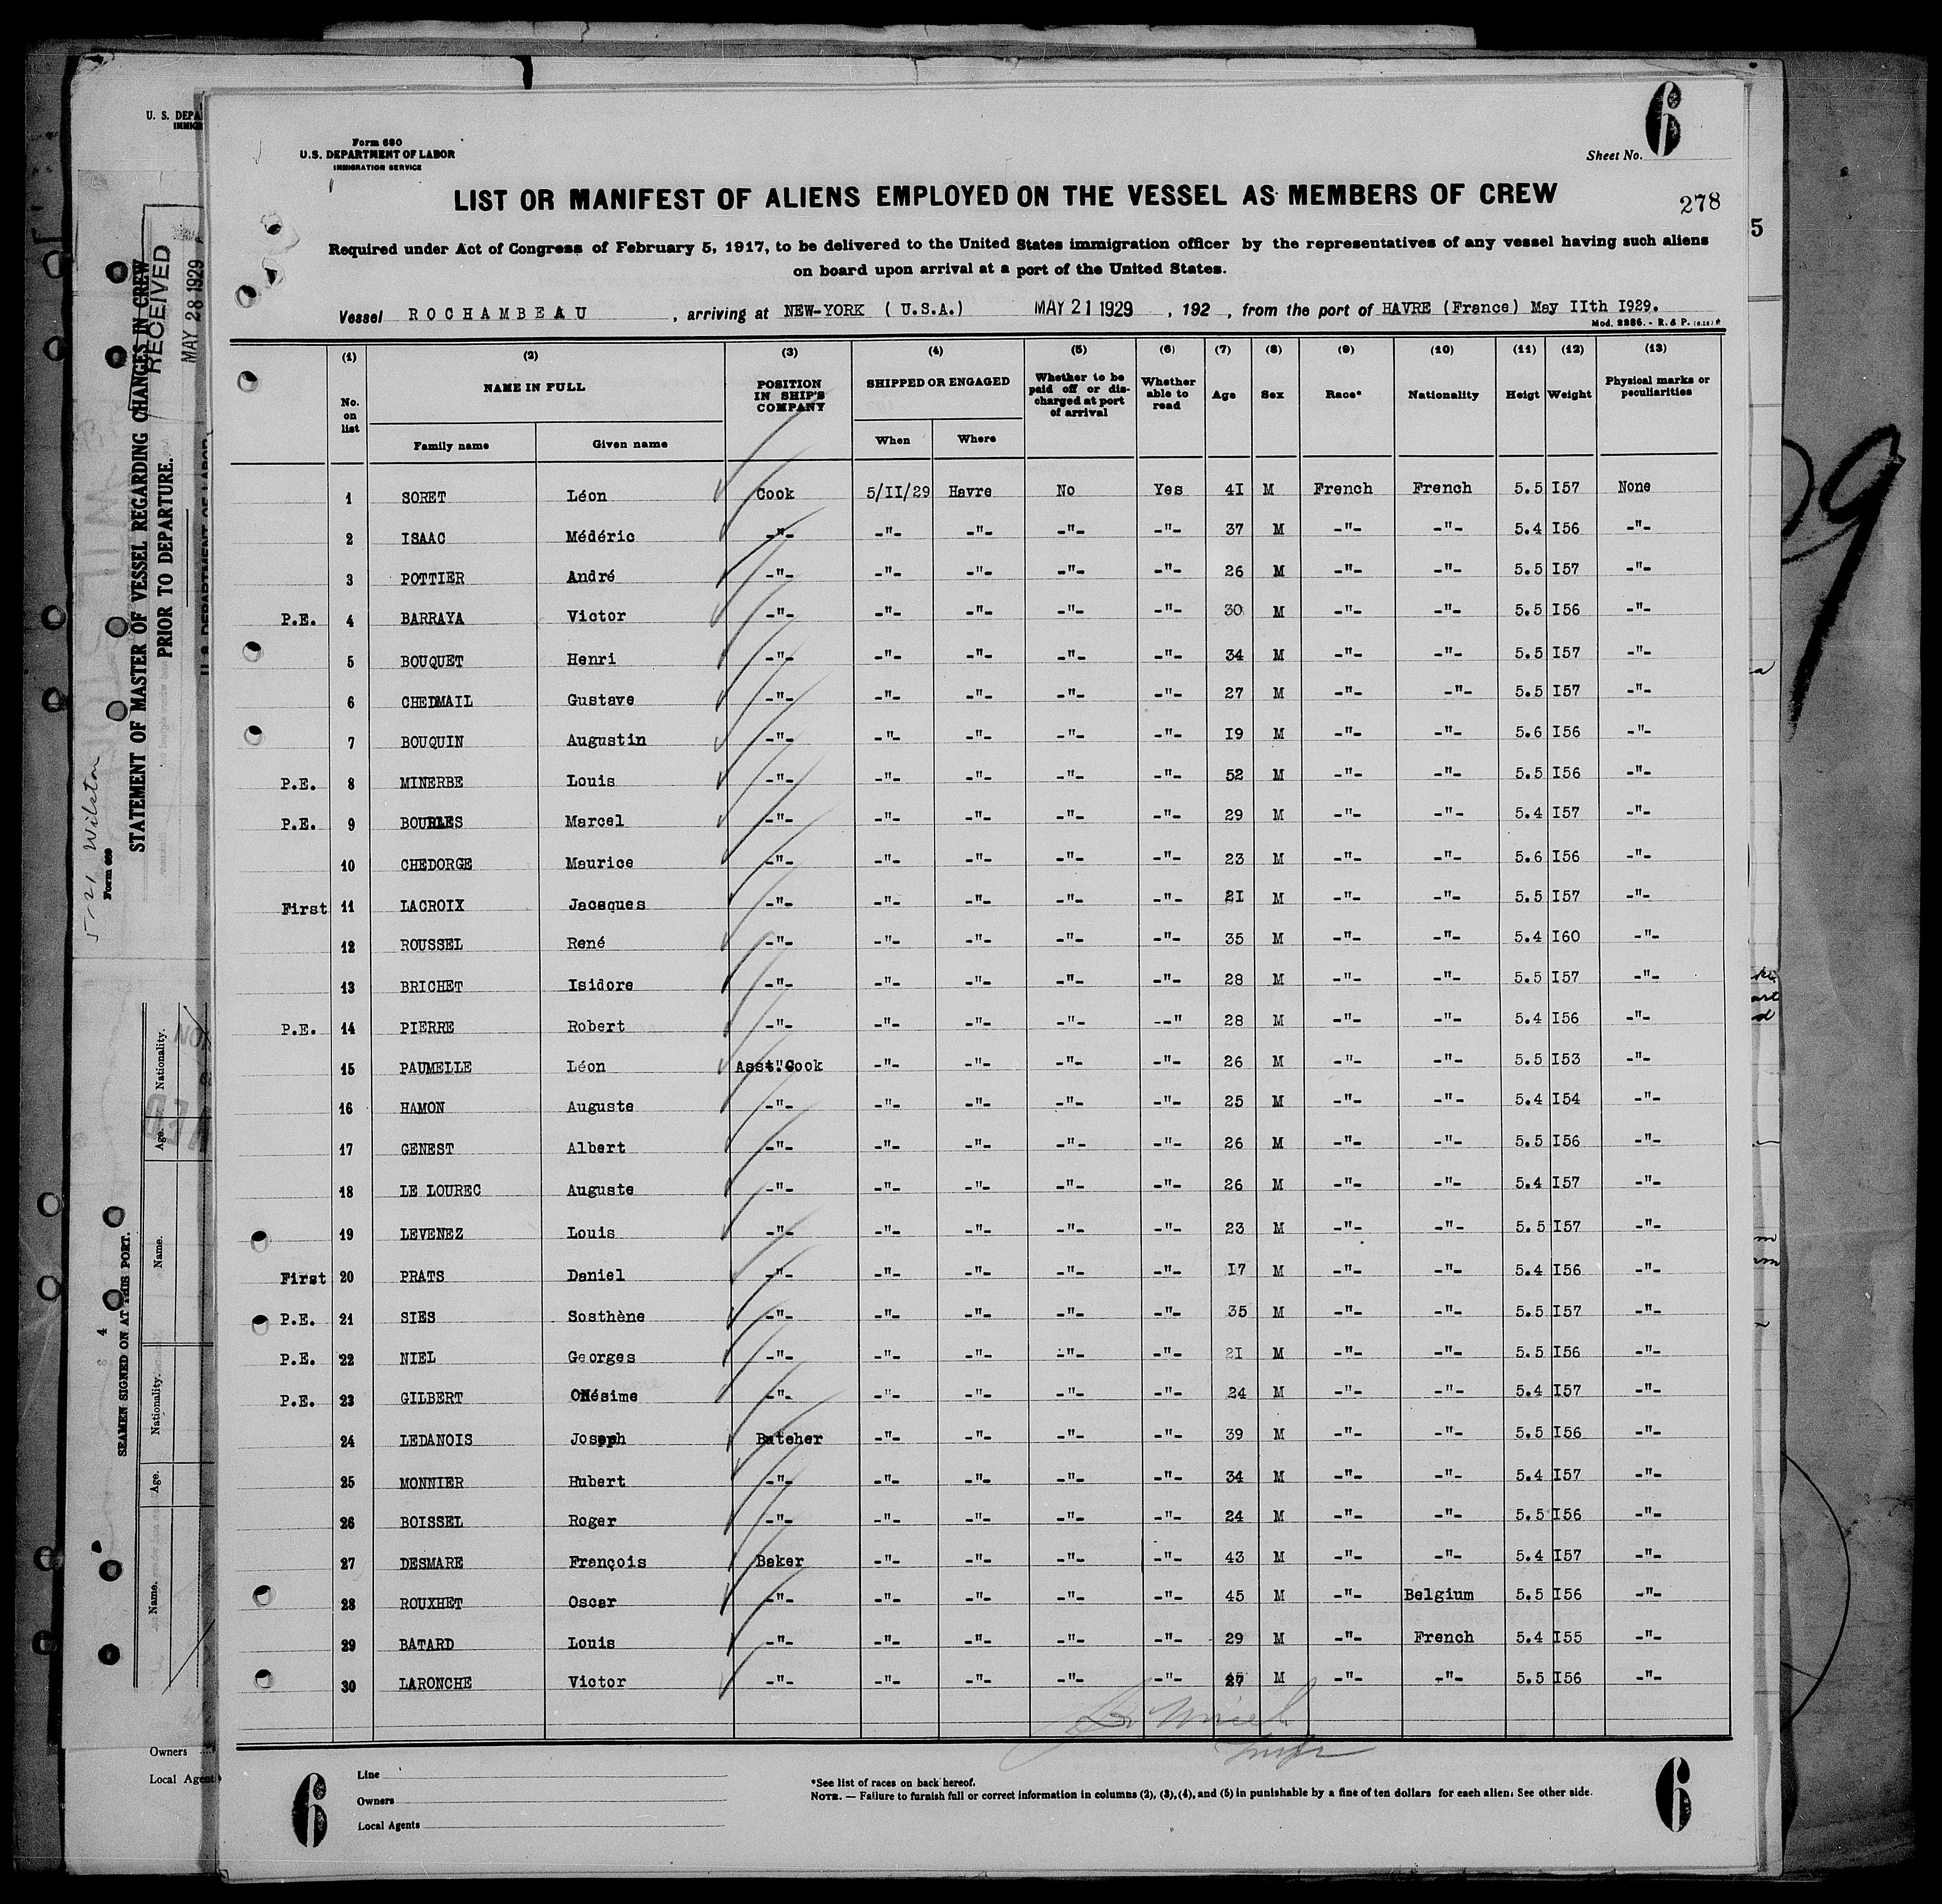 Form 680
U.S. DEPARTMENT OF LABOR
IMMIGRATION SERVICE
Sheet No. 6
278
LIST OR MANIFEST OF ALIENS EMPLOYED ON THE VESSEL AS MEMBERS OF CREW
Required under Act of Congress of February 5, 1917, to be delivered to the United States immigration officer by the representatives of any vessel having such aliens
on board upon arrival at a port of the United States.
Vessel ROCHAMBEAU, arriving at NEW-YORK (U.S.A.) MAY 21 1929, 192, from the port of HAVRE (France) May IIth I929.
Mod. 2286. - R. & P.
(1) (2) (3) (4) (5) (6) (7) (8) (9) (10) (11) (12) (13)
No. on list NAME IN FULL POSITION IN SHIP'S COMPANY SHIPPED OR ENGAGED Whether to be paid off or discharged at port of arrival Whether able to read Age Sex Race* Nationality Heigt Weight Physical marks or peculiarities
Family name Given name When Where
1 SORET Léon Cook 5/II/29 Havre No Yes 4I M French French 5.5 I57 None
2 ISAAC Médéric -"- -"- -"- -"- -"- 37 M -"- -"- 5.4 I56 -"-
3 POTTIER André -"- -"- -"- -"- -"- 26 M -"- -"- 5.5 I57 -"-
P.E. 4 BARRAYA Victor -"- -"- -"- -"- -"- 30 M -"- -"- 5.5 I56 -"-
5 BOUQUET Henri -"- -"- -"- -"- -"- 34 M -"- -"- 5.5 I57 -"-
6 CHEDMAIL Gustave -"- -"- -"- -"- -"- 27 M -"- -"- 5.5 I57 -"-
7 BOUQUIN Augustin -"- -"- -"- -"- -"- I9 M -"- -"- 5.6 I56 -"-
P.E. 8 MINERBE Louis -"- -"- -"- -"- -"- 52 M -"- -"- 5.5 I56 -"-
P.E. 9 BOURLES Marcel -"- -"- -"- -"- -"- 29 M -"- -"- 5.4 I57 -"-
10 CHEDORGE Maurice -"- -"- -"- -"- -"- 23 M -"- -"- 5.6 I56 -"-
First 11 LACROIX Jacsques -"- -"- -"- -"- -"- 2I M -"- -"- 5.5 I57 -"-
12 ROUSSEL René -"- -"- -"- -"- -"- 35 M -"- -"- 5.4 I60 -"-
13 BRICHET Isidore -"- -"- -"- -"- -"- 28 M -"- -"- 5.5 I57 -"-
P.E. 14 PIERRE Robert -"- -"- -"- -"- --" 28 M -"- -"- 5.4 I56 -"-
15 PAUMELLE Léon Asst."Cook -"- -"- -"- -"- 26 M -"- -"- 5.5 I53 -"-
16 HAMON Auguste -"- -"- -"- -"- -"- 25 M -"- -"- 5.4 I54 -"-
17 GENEST Albert -"- -"- -"- -"- -"- 26 M -"- -"- 5.5 I56 -"-
18 LE LOUREC Auguste -"- -"- -"- -"- -"- 26 M -"- -"- 5.4 I57 -"-
19 LEVENEZ Louis -"- -"- -"- -"- -"- 23 M -"- -"- 5.5 I57 -"-
First 20 PRATS Daniel -"- -"- -"- -"- -"- I7 M -"- -"- 5.4 I56 -"-
P.E. 21 SIES Sosthène -"- -"- -"- -"- -"- 35 M -"- -"- 5.5 I57 -"-
P.E. 22 NIEL Georges -"- -"- -"- -"- -"- 2I M -"- -"- 5.5 I56 -"-
P.E. 23 GILBERT ONésime -"- -"- -"- -"- -"- 24 M -"- -"- 5.4 I57 -"-
24 LEDANOIS Joseph Butcher -"- -"- -"- -"- 39 M -"- -"- 5.5 I56 -"-
25 MONNIER Hubert -"- -"- -"- -"- -"- 34 M -"- -"- 5.4 I57 -"-
26 BOISSEL Roger -"- -"- -"- -"- -"- 24 M -"- -"- 5.5 I56 -"-
27 DESMARE François Baker -"- -"- -"- -"- 43 M -"- -"- 5.4 I57 -"-
28 ROUXHET Oscar -"- -"- -"- -"- -"- 45 M -"- Belgium 5.5 I56 -"-
29 BATARD Louis -"- -"- -"- -"- -"- 29 M -"- French 5.4 I55 -"-
30 LARONCHE Victor -"- -"- -"- -"- -"- M -"- -"- 5.5 I56 -"-
6
Line
Owners
Local Agents
*See list of races on back hereof.
NOTE. — Failure to furnish full or correct information in columns (2), (3), (4), and (5) in punishable by a fine of ten dollars for each alien. See other side.
6
U. S. DEPA
IMMIG
STATEMENT OF MASTER OF VESSEL REGARDING CHANGES IN CREW
PRIOR TO DEPARTURE.
RECEIVED
MAY 28 1929
5-21 Wilston
Form 689
SEAMEN SIGNED ON AT THIS PORT.
Name. Age. Nationality. Name. Age. Nationality.
4
Owners
Local Agent
5